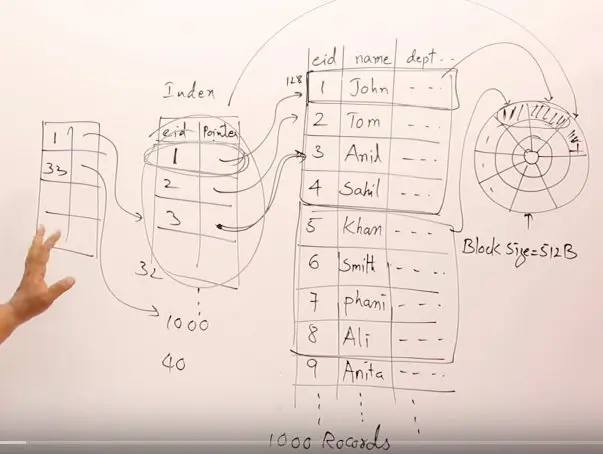 eid name dept..
128
1 John - - -
2 Tom - - -
3 Anil - - -
4 Sahil - - -
5 Khan - - -
6 Smith - - -
7 phani - - -
8 Ali - - -
9 Anita - - -
1000 Rocords
Index
eid Pointer
1
2
3
32
1000
40
1
33
Block Size=512B